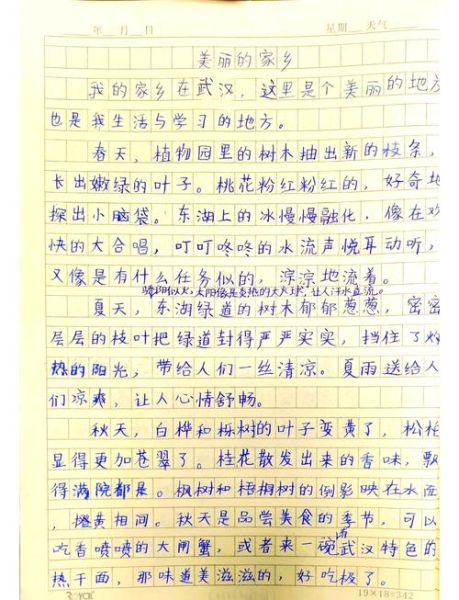 年 月 日 星期 天气
美丽的家乡
我的家乡在武汉，这里是个美丽的地方
也是我生活与学习的地方。
春天，植物园里的树木抽出新的枝条，
长出嫩绿的叶子。桃花粉红粉红的，好奇地
探出小脑袋。东湖上的冰慢慢融化，像在欢
快的大合唱，叮叮咚咚的水流声悦耳动听，
又像是有什么任务似的，淙淙地流着。
骄阳似火，太阳像是炎热的大火球，让人汗水直流。
夏天，东湖绿道的树木郁郁葱葱，密密
层层的枝叶把绿道封得严严实实，挡住了灼
热的阳光，带给人们一丝清凉。夏雨送给人
们凉爽，让人心情舒畅。
秋天，白桦和栎树的叶子变黄了，松柏
显得更加苍翠了。桂花散发出来的香味，飘
得满院都是。枫树和梧桐树的倒影映在水面
，橙黄相间。秋天是品尝美食的季节，可以
吃香喷喷的大闸蟹，或者来一碗武汉特色的
热干面，那味道美滋滋的，好吃极了。
19×18=342